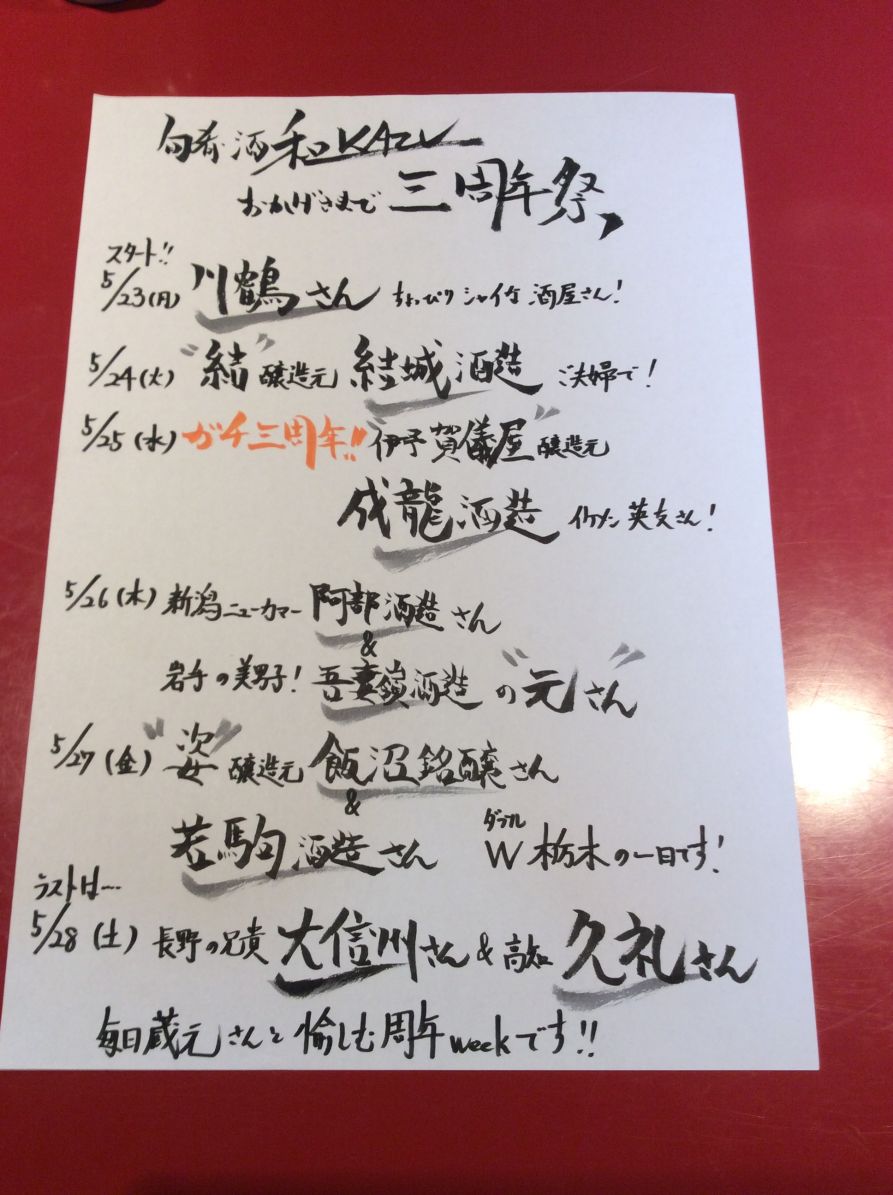 旬肴酒和KAZU
おかげさまで 三周年祭、
スタート!!
5/23(月) 川鶴さん ちょっぴりシャイな酒屋さん!
5/24(火) "結" 醸造元 結城酒造 ご夫婦で!
5/25(水) ガチ三周年!! "伊予賀儀屋" 醸造元
成龍酒造 イケメン英友さん!
5/26(木) 新潟ニューカマー 阿部酒造さん
&
岩手の美男子! 吾妻嶺酒造 の"元"さん
5/27(金) "姿" 醸造元 飯沼銘醸さん
&
ダブル
若駒酒造さん W栃木の一日です!
ラストは…
5/28(土) 長野の兄貴 大信州さん & 高知 久礼さん
毎日蔵元さんと愉しむ周年weekです!!